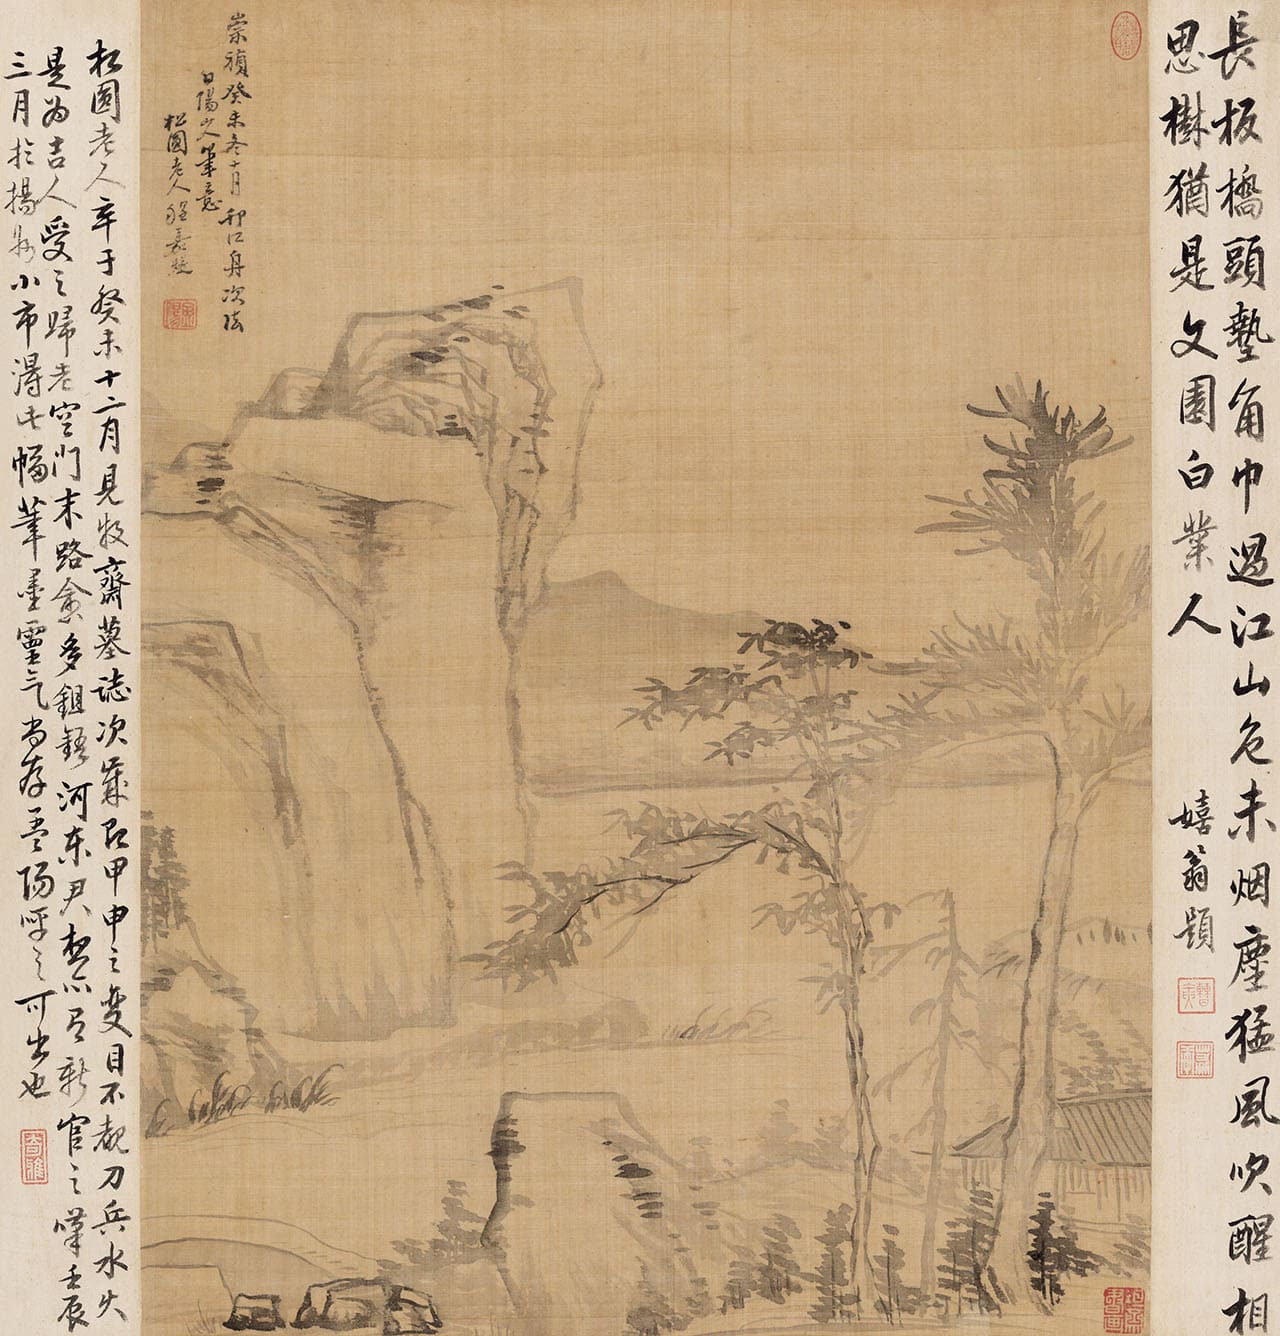 長板橋頭墊角巾過江山色未烟塵猛風吹醒相
思樹猶是文園白業人
嬉翁題
崇禎癸未冬十月邗江舟次法
白陽山人筆意
松圓老人程嘉燧
松圓老人卒于癸未十二月見牧齋墓誌次歲即甲申之變目不覩刀兵水火
是為吉人受之歸老空門末路愈多鉏鋙河東君愁亦有新官之嘆壬辰
三月於揚州小市得此幅筆墨靈气尚存孟陽呼之可出也